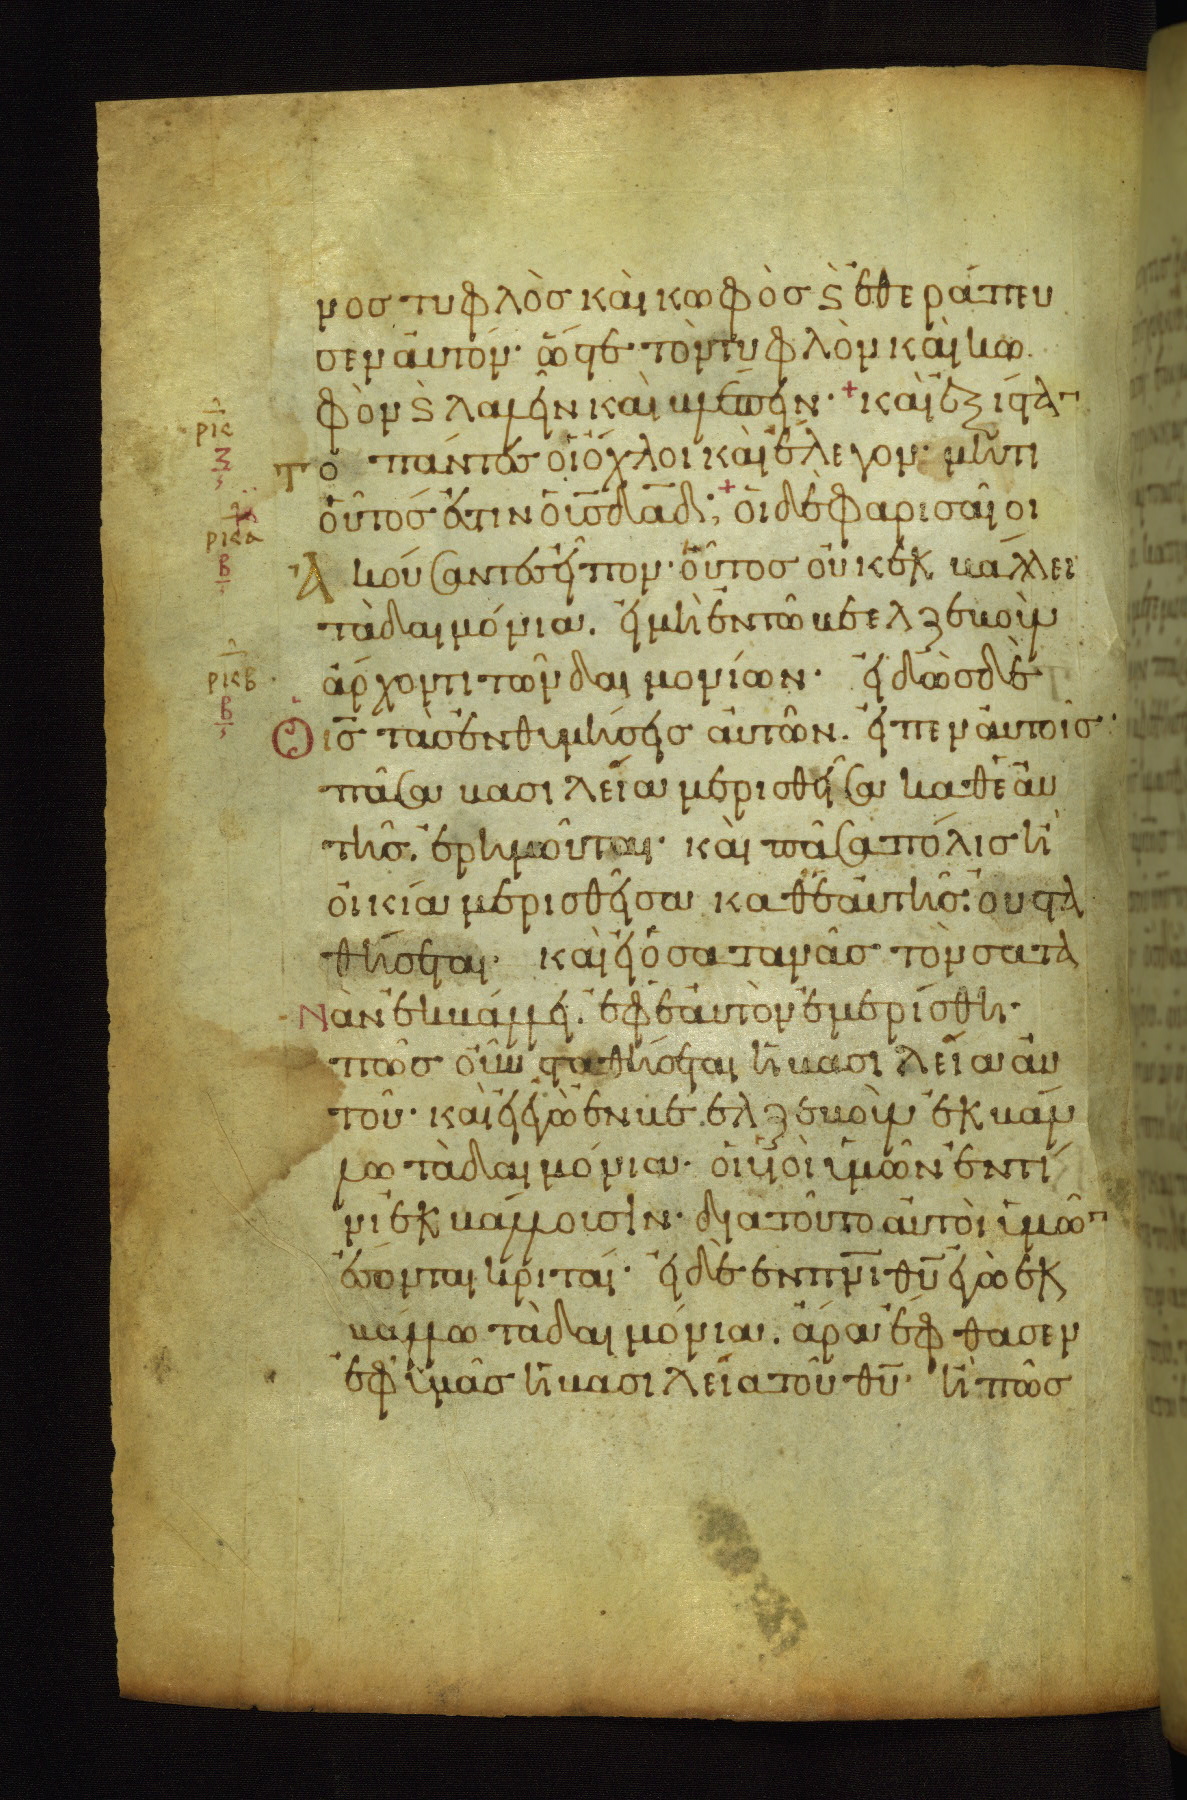 νος τυφλὸς καὶ κωφὸς ϛ̀ ἐθεράπευ
σεν ἀυτόν· ὥστε τὸν τυφλὸν καὶ κω
φὸν ϛ̀ λαλεῖν καὶ βλέπειν· + καὶ ἐξίσταν
ρικ
ζ
το πάντες οἱ ὄχλοι καὶ ἔλεγον· μήτι
οὗτός ἐστιν ὁ υ̅ς̅ δα̅δ̅; + ὁι δὲ φαρισαῖοι
ρικα
β
Ἀκούσαντες εἶπον· οὗτος οὐκ ἐκβάλλει
τὰ δαιμόνια. εἰ μὴ ἐν τῶ βεελζεβοὺλ
ρικβ
β
ἄρχοντι τῶν δαιμονίων· εἰδὼς δὲ
Ὁ ι̅ς̅ τὰς ἐνθυμήσεις ἀυτῶν. εἶπεν ἀυτοῖς·
πᾶσα βασιλεία μερισθεῖσα καθ ἑαυ
τῆς. ἐρημοῦται· καὶ πᾶσα πόλις ἢ
οἰκία μερισθεῖσα καθ ἑαυτῆς· οὐ στα
θήσεται· καὶ εἰ ὁ σατανᾶς τὸν σατα
νὰν ἐκβάλλει. ἐφ ἑαυτὸν ἐμερίσθη·
πῶς οὖν σταθήσεται ἡ βασιλεία ἀυ
τοῦ· καὶ εἰ ἐγὼ ἐν βεελζεβοὺλ ἐκβάλ
λω τὰ δαιμόνια· οἱ υἱοὶ ὑμῶν ἐν τί
νι ἐκβάλλουσιν· διατοῦτο ἀυτοὶ ὑμῶν
ἔσονται κριταί· εἰ δὲ ἐν π̅ν̅ι̅ θ̅υ̅ ἐγὼ ἐκ
βάλλω τὰ δαιμόνια. ἄρα ἔφθασεν
ἐφ ὑμᾶς ἡ βασιλεία τοῦ θ̅υ̅· ἢ πῶς